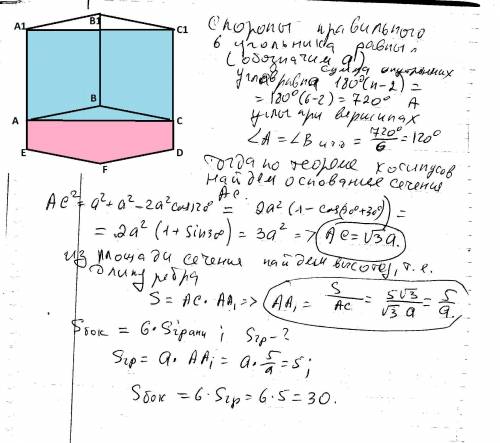 A1
B1
C1
B
A
C
E
D
F
Стороны правильного
6 угольника равны
(обозначим a)
сумма внутренних
углов равна 180°(n-2) =
= 180°(6-2) = 720°
углы при вершинах
∠A = ∠B и т.д = 720°/6 = 120°
Тогда по теореме косинусов
найдем основание сечения
AC.
AC² = a² + a² - 2a² cos120° = 2a² (1 - cos(90°+30°)) =
= 2a² (1 + Sin30°) = 3a² => AC = √3 a.
из площади сечения найдем высоту, т.е.
длину ребра
S = AC · AA₁ => AA₁ = S/AC = 5√3/√3 a = 5/a.
Sбок = 6 · Sграни ; Sгр - ?
Sгр = a · AA₁ = a · 5/a = 5 ;
Sбок = 6 · Sгр = 6 · 5 = 30.